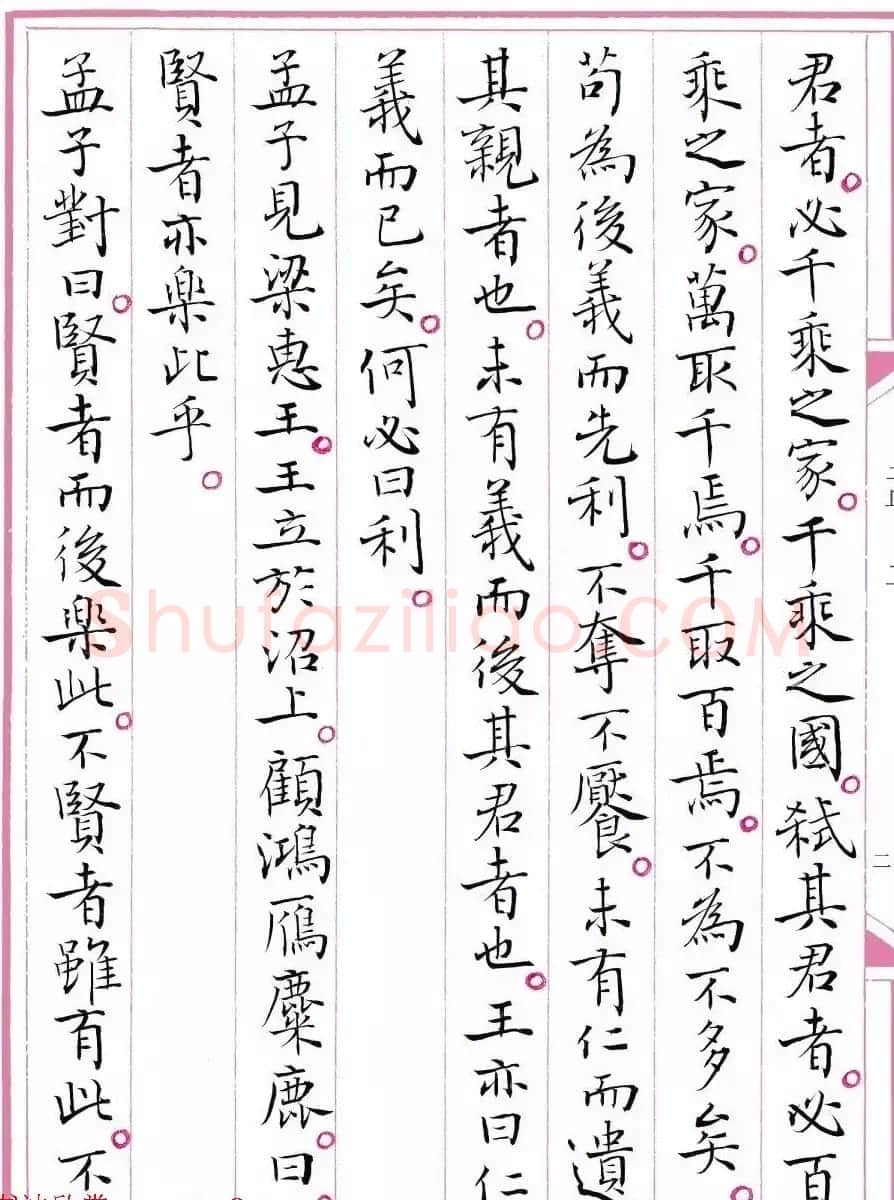 君者。必千乘之家。千乘之國。弒其君者。必百
乘之家。萬取千焉。千取百焉。不為不多矣。
苟為後義而先利。不奪不饜。未有仁而遺
其親者也。未有義而後其君者也。王亦曰仁
義而已矣。何必曰利。
孟子見梁惠王。王立於沼上。顧鴻鴈麋鹿。曰
賢者亦樂此乎。
孟子對曰。賢者而後樂此。不賢者雖有此。不
二
shufaziliao.COM